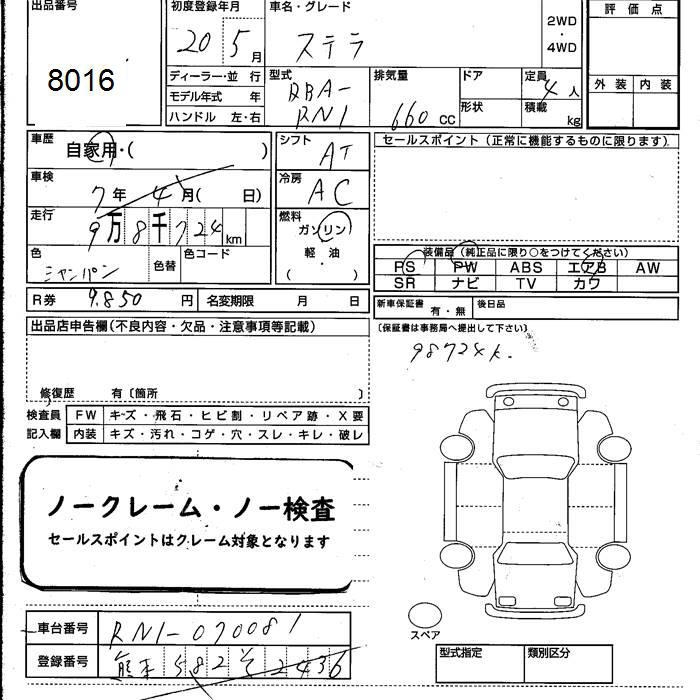 出品番号 初度登録年月 車名・グレード 評価点
8016 20 5月 ステラ 2WD・4WD
ディーラー・並行 型式 排気量 ドア 定員 4人 外装 内装
モデル年式 年 RBA-
ハンドル 左・右 RN1 660cc 形状 積載 kg
車歴 自家用・( ) シフト AT セールスポイント(正常に機能するものに限ります)
車検 7年 4月( 日) 冷房 AC
走行 9万8千724km 燃料 ガソリン
軽油
( )
色 シャンパン 色替 色コード
装備品(純正品に限り○をつけてください)
PS PW ABS エアB AW
SR ナビ TV カワ
R券 9.850円 名変期限 月 日 新車保証書 有・無 後日品
(保証書は事務局へ提出して下さい)
出品店申告欄(不良内容・欠品・注意事項等記載)
98724k.
修復歴 有〔箇所 〕
検査員 FW キズ・飛石・ヒビ割・リペア跡・X要
記入欄 内装 キズ・汚れ・コゲ・穴・スレ・キレ・破レ
ノークレーム・ノー検査
セールスポイントはクレーム対象となります
スペア
車台番号 RN1-070081
登録番号 熊本 582 そ 2436
型式指定 類別区分